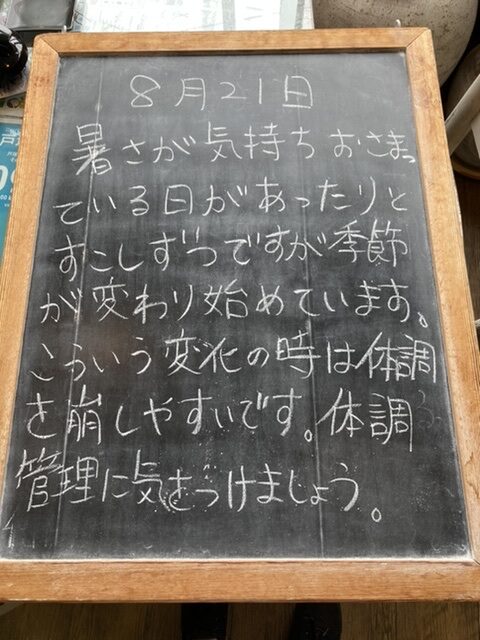 8月21日
暑さが気持ちおさまっ
ている日があったりと
すこしずつですが季節
が変わり始めています。
こういう変化の時は体調
を崩しやすいです。体調
管理に気をつけましょう。